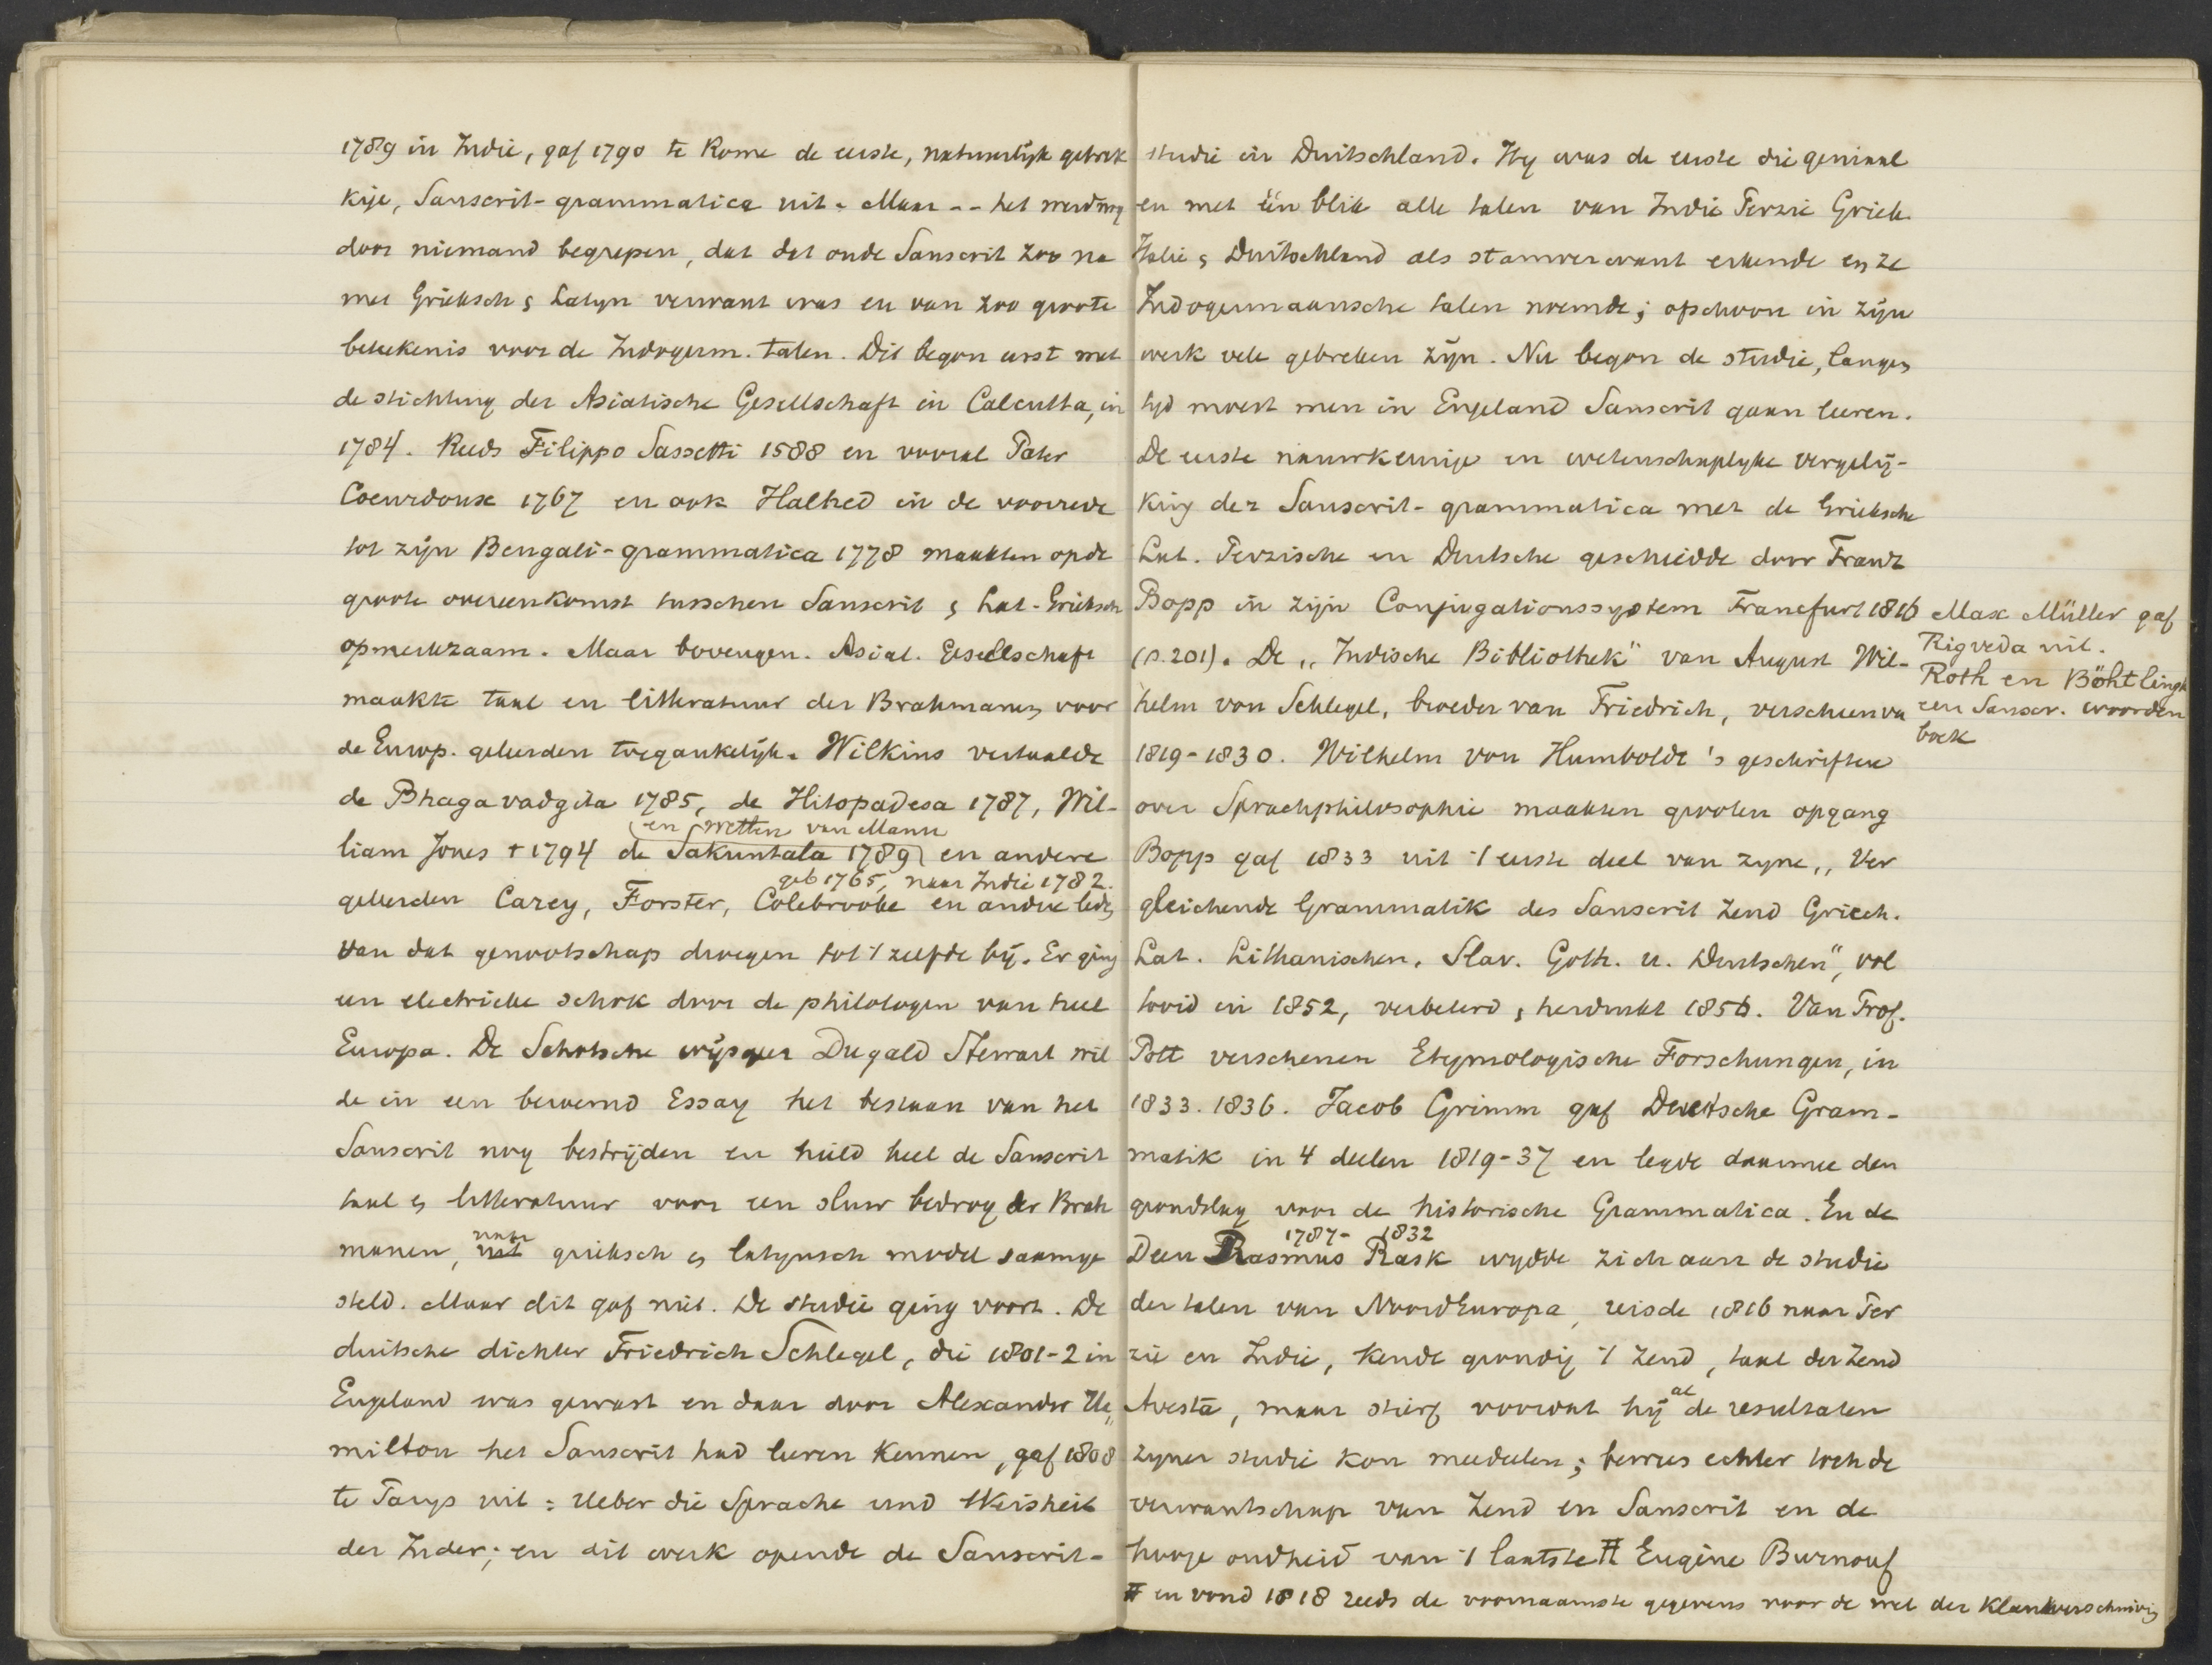 1789 in Indie, gaf 1790 te Rome de eerste, natuurlijk gebrek
kije, Sanscrit-grammatica uit. Maar -- het werd nog
door niemand begrepen, dat dat oude Sanscrit zoo na
met Grieksch & Latyn verwant was en van zoo groote
beteekenis voor de Indogerm. talen. Dit begon eerst met
de stichting der Asiatische Gesellschaft in Calcutta, in
1784. Reeds Filippo Sassetti 1588 en vooral Pater
Coeurdoux 1767 en ook Halhed in de voorrede
tot zijn Bengali-grammatica 1778 maakten op de
groote overeenkomst tusschen Sanscrit & Lat-Grieksch
opmerkzaam. Maar bovengen. Asiat. Gesellschaft
maakte taal en litteratuur der Brahmanen voor
de Europ. geleerden toegankelijk. Wilkins vertaalde
de Bhagavadgita 1785, de Hitopadesa 1787, Wil-
(en wetten van Manu
liam Jones † 1794 de Sakuntala 1789) en andere
geb 1765, naar Indie 1782.
geleerden Carey, Forster, Colebrooke en andere leden
van dat genootschap droegen tot 't zelfde bij. Er ging
een electrieke schok door de philologen van heel
Europa. De Schotsche wijsgeer Dugald Stewart wil
de in een beroemd Essay het bestaan van het
Sanscrit nog bestrijden en hield heel de Sanscrit
taal & litteratuur voor een sluw bedrog der Brah
naar
manen, uit grieksch & latynsch model saamge
steld. Maar dit gaf niet. De studie ging voort. De
duitsche dichter Friedrich Schlegel, die 1801-2 in
Engeland was geweest en daar door Alexander Ha„
milton het Sanscrit had leeren kennen, gaf 1808
te Parys uit: Ueber die Sprache und Weisheit
der Inder; en dit werk opende de Sanscrit-
studie in Duitschland. Hy was de eerste die geniaal
en met één blik alle talen van Indie Perzie Griek
Italie & Duitschland als stamverwant erkende en ze
Indogermaansche talen noemde; ofschoon in zijn
werk vele gebreken zijn. Nu begon de studie, langen
tyd moest men in Engeland Sanscrit gaan leeren.
De eerste nauwkeurige en wetenschaplyke vergelij-
king der Sanscrit-grammatica met de Grieksche
Lat. Perzische en Duitsche geschiedde door Franz
Bopp in zijn Conjugationssystem Francfurt 1816
(s. 201). De „Indische Bibliothek" van August Wil-
helm von Schlegel, broeder van Friedrich, verscheen va
1819-1830. Wilhelm von Humboldt's geschriften
over Sprachphilosophie maakten grooten opgang
Bopp gaf 1833 uit 't eerste deel van zyne „Ver
gleichende Grammatik des Sanscrit Zend Griech.
Lat. Lithanischen, Slav. Goth. u. Deutschen", vol
tooid in 1852, verbeterd & herdrukt 1856. Van Prof.
Pott verschenen Etymologische Forschungen, in
1833. 1836. Jacob Grimm gaf Deutsche Gram-
matik in 4 deelen 1819-37 en legde daarmee den
grondslag voor de historische Grammatica. En de
1787- 1832
Deen Rasmus Rask wydde zich aan de studie
der talen van NoordEuropa, reisde 1816 naar Per
zie en Indie, kende grondig 't Zend, taal der Zend
al
Avesta, maar stierf voordat hij de resultaten
zyner studie kon meedelen; bewees echter toch de
verwantschap van Zend en Sanscrit en de
hooge oudheid van 't laatste # Eugène Burnouf
# en vond 1818 reeds de voornaamste gegevens voor de wet der Klankverschuivig
Max Müller gaf
Rigveda uit.
Roth en Böhtlingk
een Sanscr. woorden
boek